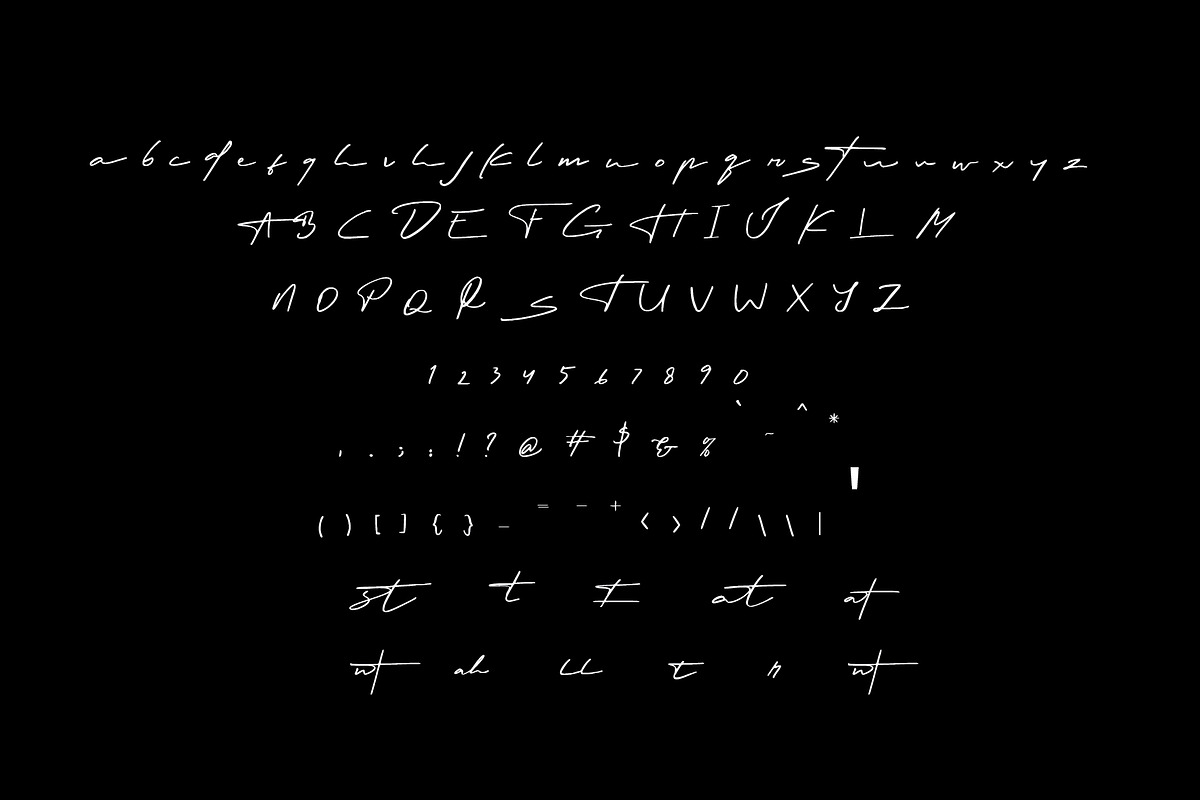 a b c d e f g h v h j k l m n o p q r s t u u w x y z
A B C D E F G H I J K L M
N O P Q R S T U V W X Y Z
1 2 3 4 5 6 7 8 9 0
, . ; : ! ? @ # $ & % ` ~ ^ *
( ) [ ] { } _ = - + < > / / \ \ | '
st t t at at
wt ah ll t n wt